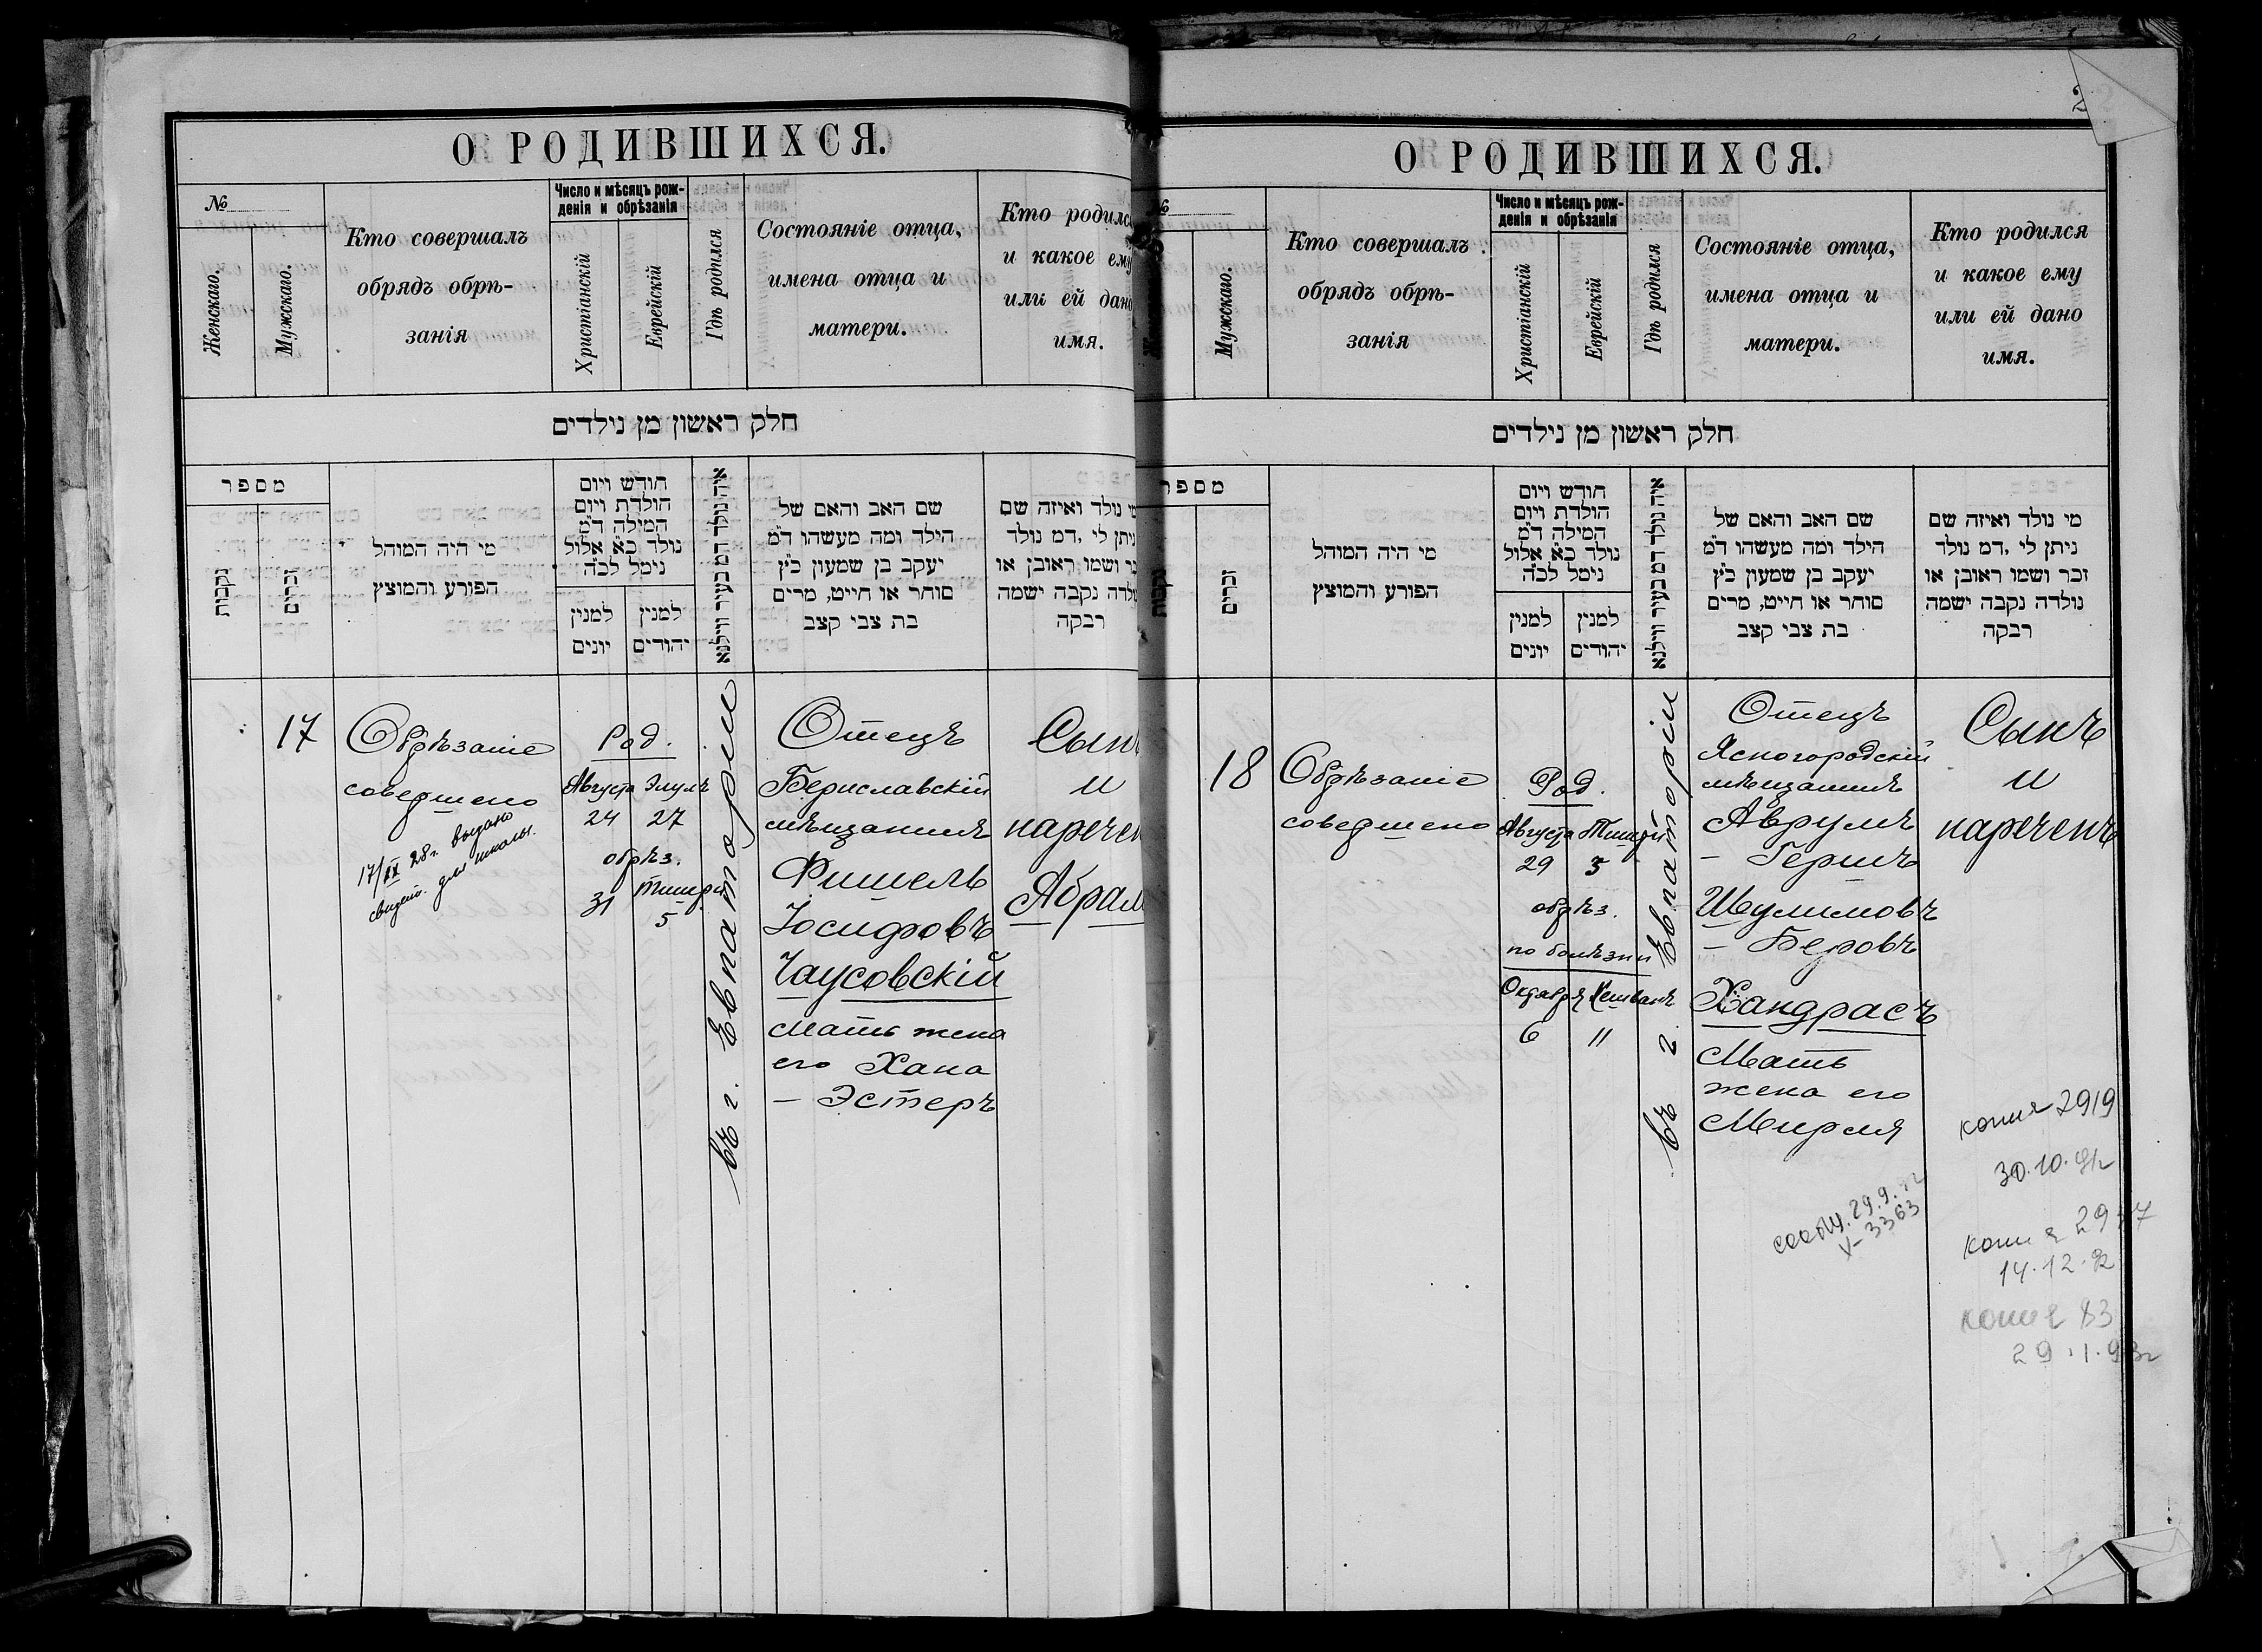 О РОДИВШИХСЯ.
№
Женскаго.
Мужескаго.
Кто совершалъ
обрядъ обрѣ-
занія
Число и мѣсяцъ рож-
денія и обрѣзанія
Христіанскій
Еврейскій
Гдѣ родился
Состояніе отца,
имена отца и
матери.
Кто родился
и какое ему
или ей дано
имя.
חלק ראשון מן נילדים
מספר
נקבות
זכרים
מי היה המוהל
הפורע והמוצץ
חודש ויום
הולדת ויום
המילה ד״מ
נולד כ״א אלול
נימל לכ״ה
למנין
יונים
למנין
יהודים
איה נולד דמ בעיר ווילנא
שם האב והאם של
הילד ומה מעשהו ד״מ
יעקב בן שמעון כ״ץ
סוחר או חייט, מרים
בת צבי קצב
מי נולד ואיזה שם
ניתן לי, דמ נולד
זכר ושמו ראובן או
נולדה נקבה ישמה
רבקה
17
Обрѣзаніе
совершено
17/IX 28 г. выдано
свидет. для школы.
Род.
Августа Элулъ
24 27
обрѣз.
31 Тишри
5
въ г. Евпаторіи
Отецъ
Бериславскій
мѣщанинъ
Фишель
Іосифовъ
Чаусовскій
Мать жена
его Хана
- Эстеръ
Сынъ
и
нареченъ
Абрам
2
О РОДИВШИХСЯ.
№
Мужскаго.
Кто совершалъ
обрядъ обрѣ-
занія
Число и мѣсяцъ рож-
денія и обрѣзанія
Христіанскій
Еврейскій
Гдѣ родился
Состояніе отца,
имена отца и
матери.
Кто родился
и какое ему
или ей дано
имя.
חלק ראשון מן נילדים
מספר
נקבות
זכרים
מי היה המוהל
הפורע והמוצץ
חודש ויום
הולדת ויום
המילה ד״מ
נולד כ״א אלול
נימל לכ״ה
למנין
יונים
למנין
יהודים
איה נולד דמ בעיר ווילנא
שם האב והאם של
הילד ומה מעשהו ד״מ
יעקב בן שמעון כ״ץ
סוחר או חייט, מרים
בת צבי קצב
מי נולד ואיזה שם
ניתן לי, דמ נולד
זכר ושמו ראובן או
נולדה נקבה ישמה
רבקה
18
Обрѣзаніе
совершено
Род.
Августа Тишри
29 5
обрѣз.
по болѣзни
Октября Хешванъ
6 11
въ г. Евпаторіи
Отецъ
Ясногородскій
мѣщанинъ
Аврумъ
- Гершъ
Шулимовъ
- Беровъ
Хандрасъ
Мать
жена его
Мирля
Сынъ
и
нареченъ
копия 2919
30.10.91г
сообщ. 29.9.92
V-3363
копия 2947
14.12.92
копия 83
29.1.93г